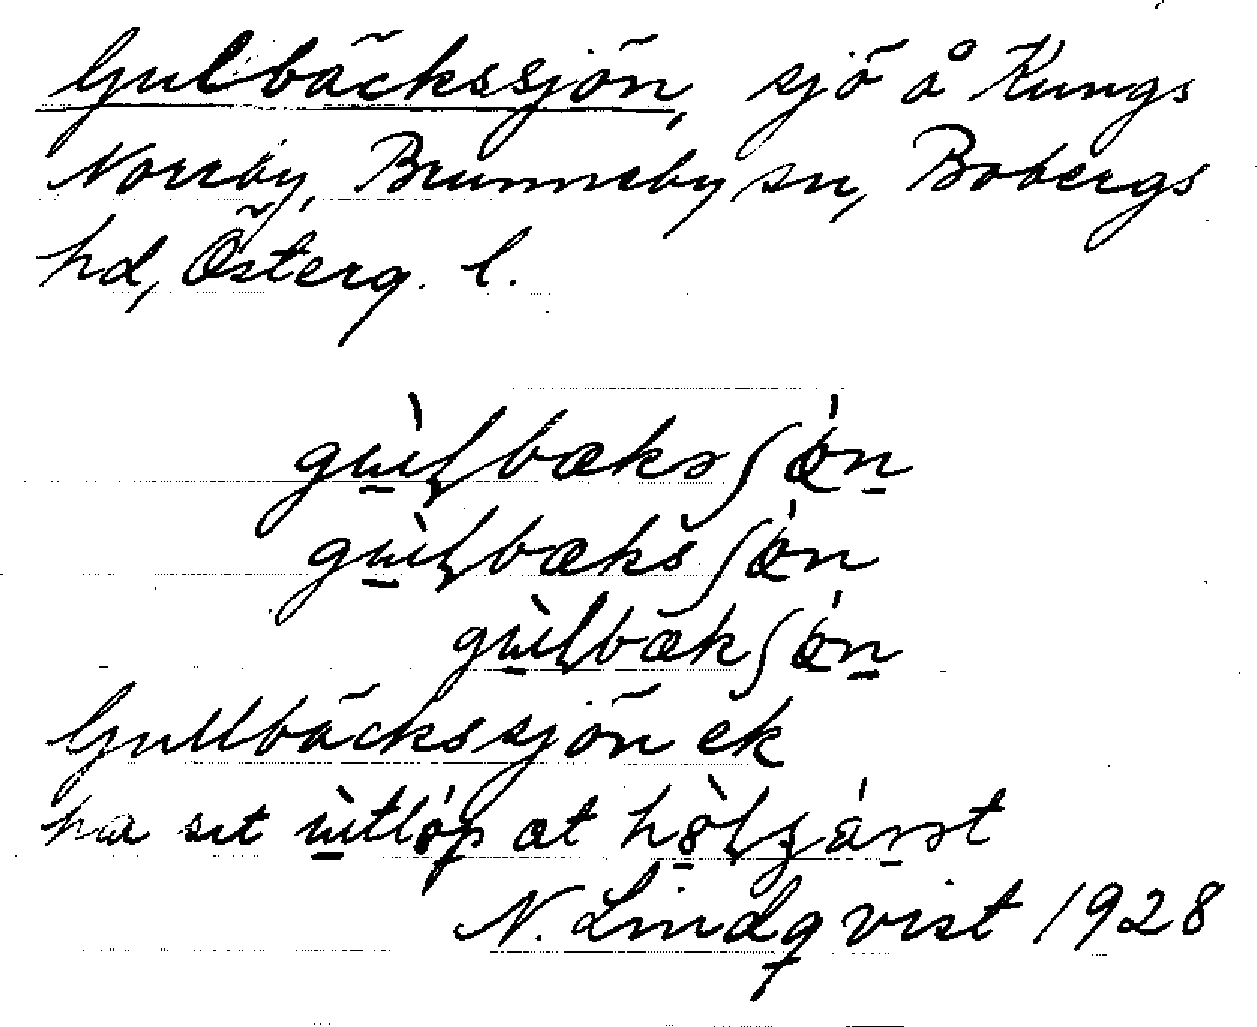 Gulbäckssjön, sjö å Kungs
Norrby, Brunneby sn, Bobergs
hd, Österg. l.
gùlbæksʃøn
gùlbæksʃøn
gùlbækʃøn
Gullbäckssjön ek
ha sit ùtløp at
N. Lindqvist 1928